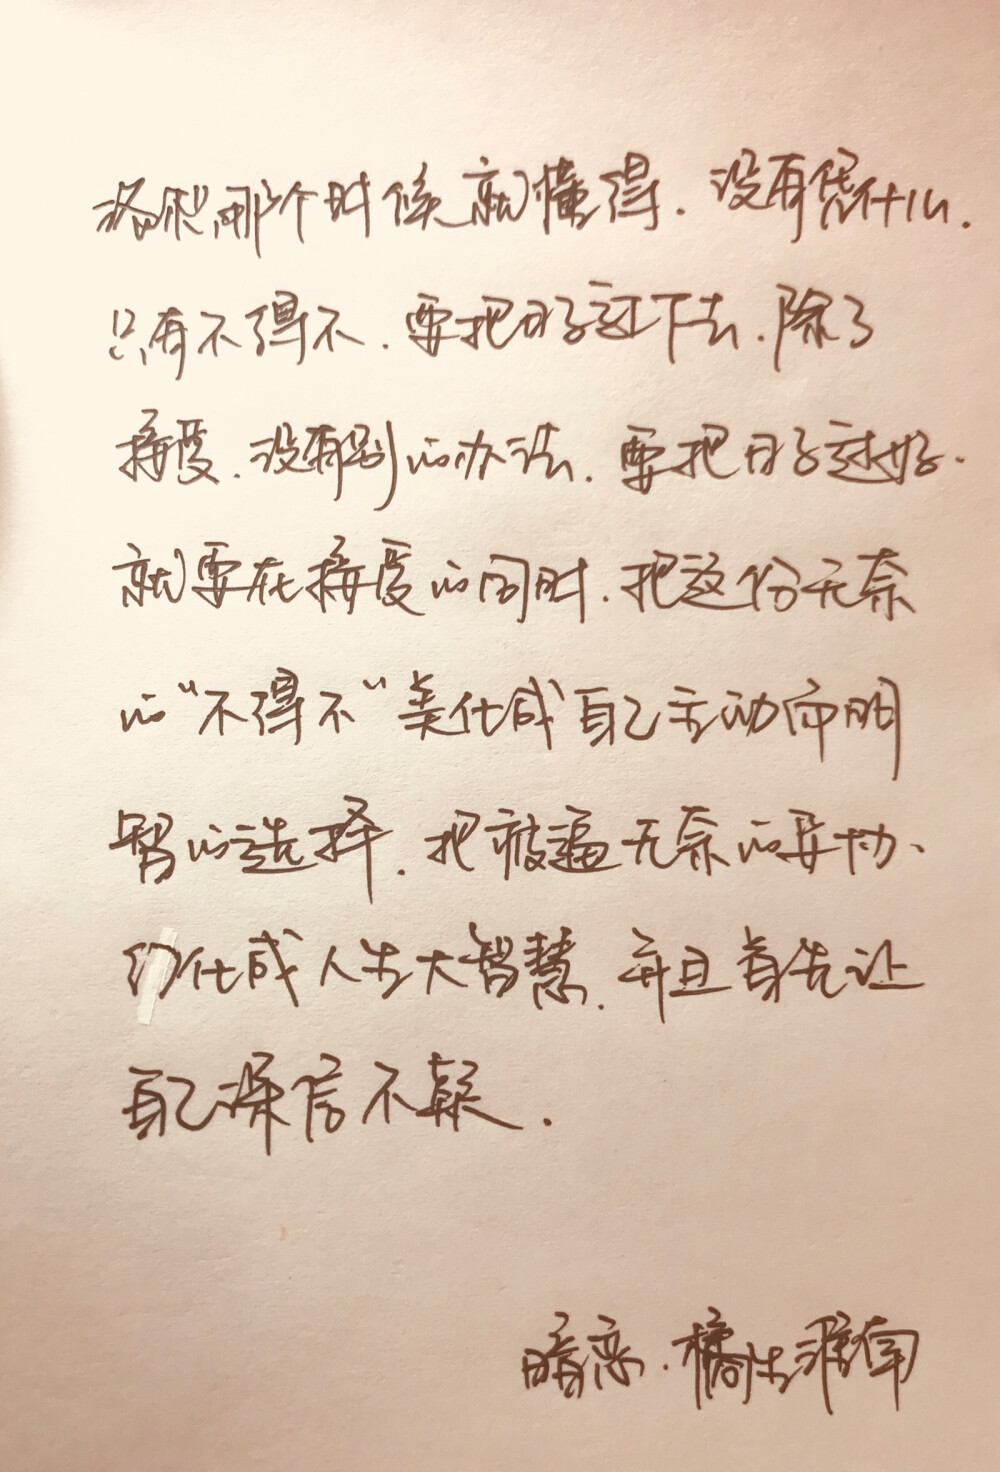 洛枳那个时候就懂得.没有凭什么.
只有不得不.要把日子过下去.除了
接受.没有别的办法.要把日子过好.
就要在接受的同时.把这份无奈
的“不得不”美化成自己主动而明
智的选择.把被逼无奈的妥协、
幻化成人生大智慧.并且首先让
自己深信不疑.
暗恋.橘生淮南